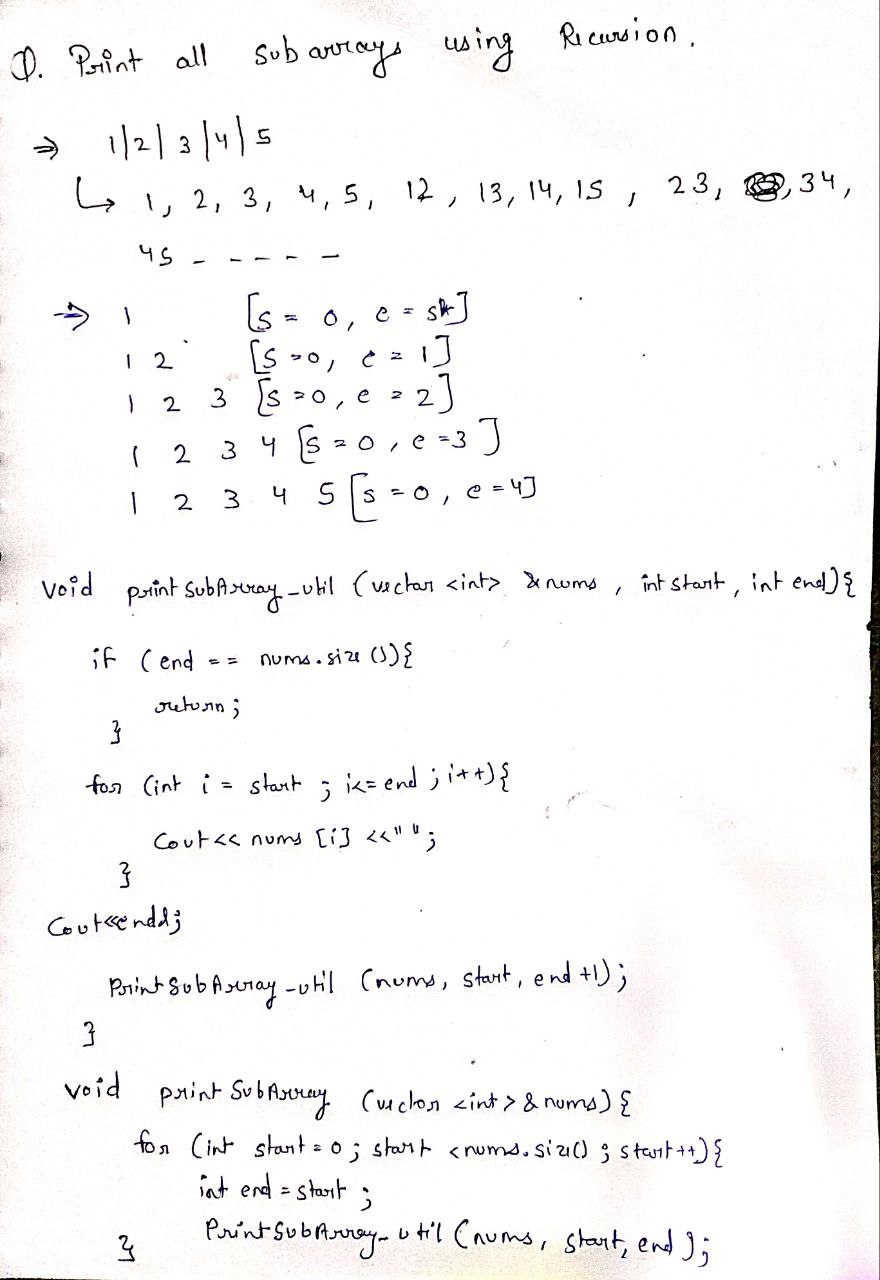 Q. Print all Subarrays using Recursion.
⇒ 1|2|3|4|5
↳ 1, 2, 3, 4, 5, 12, 13, 14, 15, 23, 34,
45 - - - - -
⇒ 1 [s = 0, e = s]
1 2 [s=0, e=1]
1 2 3 [s=0, e=2]
1 2 3 4 [s=0, e=3]
1 2 3 4 5 [s=0, e=4]
void printSubArray_util (vector <int> &nums, int start, int end){
if (end == nums.size ()){
return;
}
for (int i = start ; i<= end ; i++){
Cout<< nums [i] <<" ";
}
Cout<<endl;
PrintSubArray_util (nums, start, end +1);
}
void printSubArray (vector <int> & nums) {
for (int start = 0 ; start <nums.size() ; start++){
int end = start ;
PrintSubArray_util (nums, start, end );
}